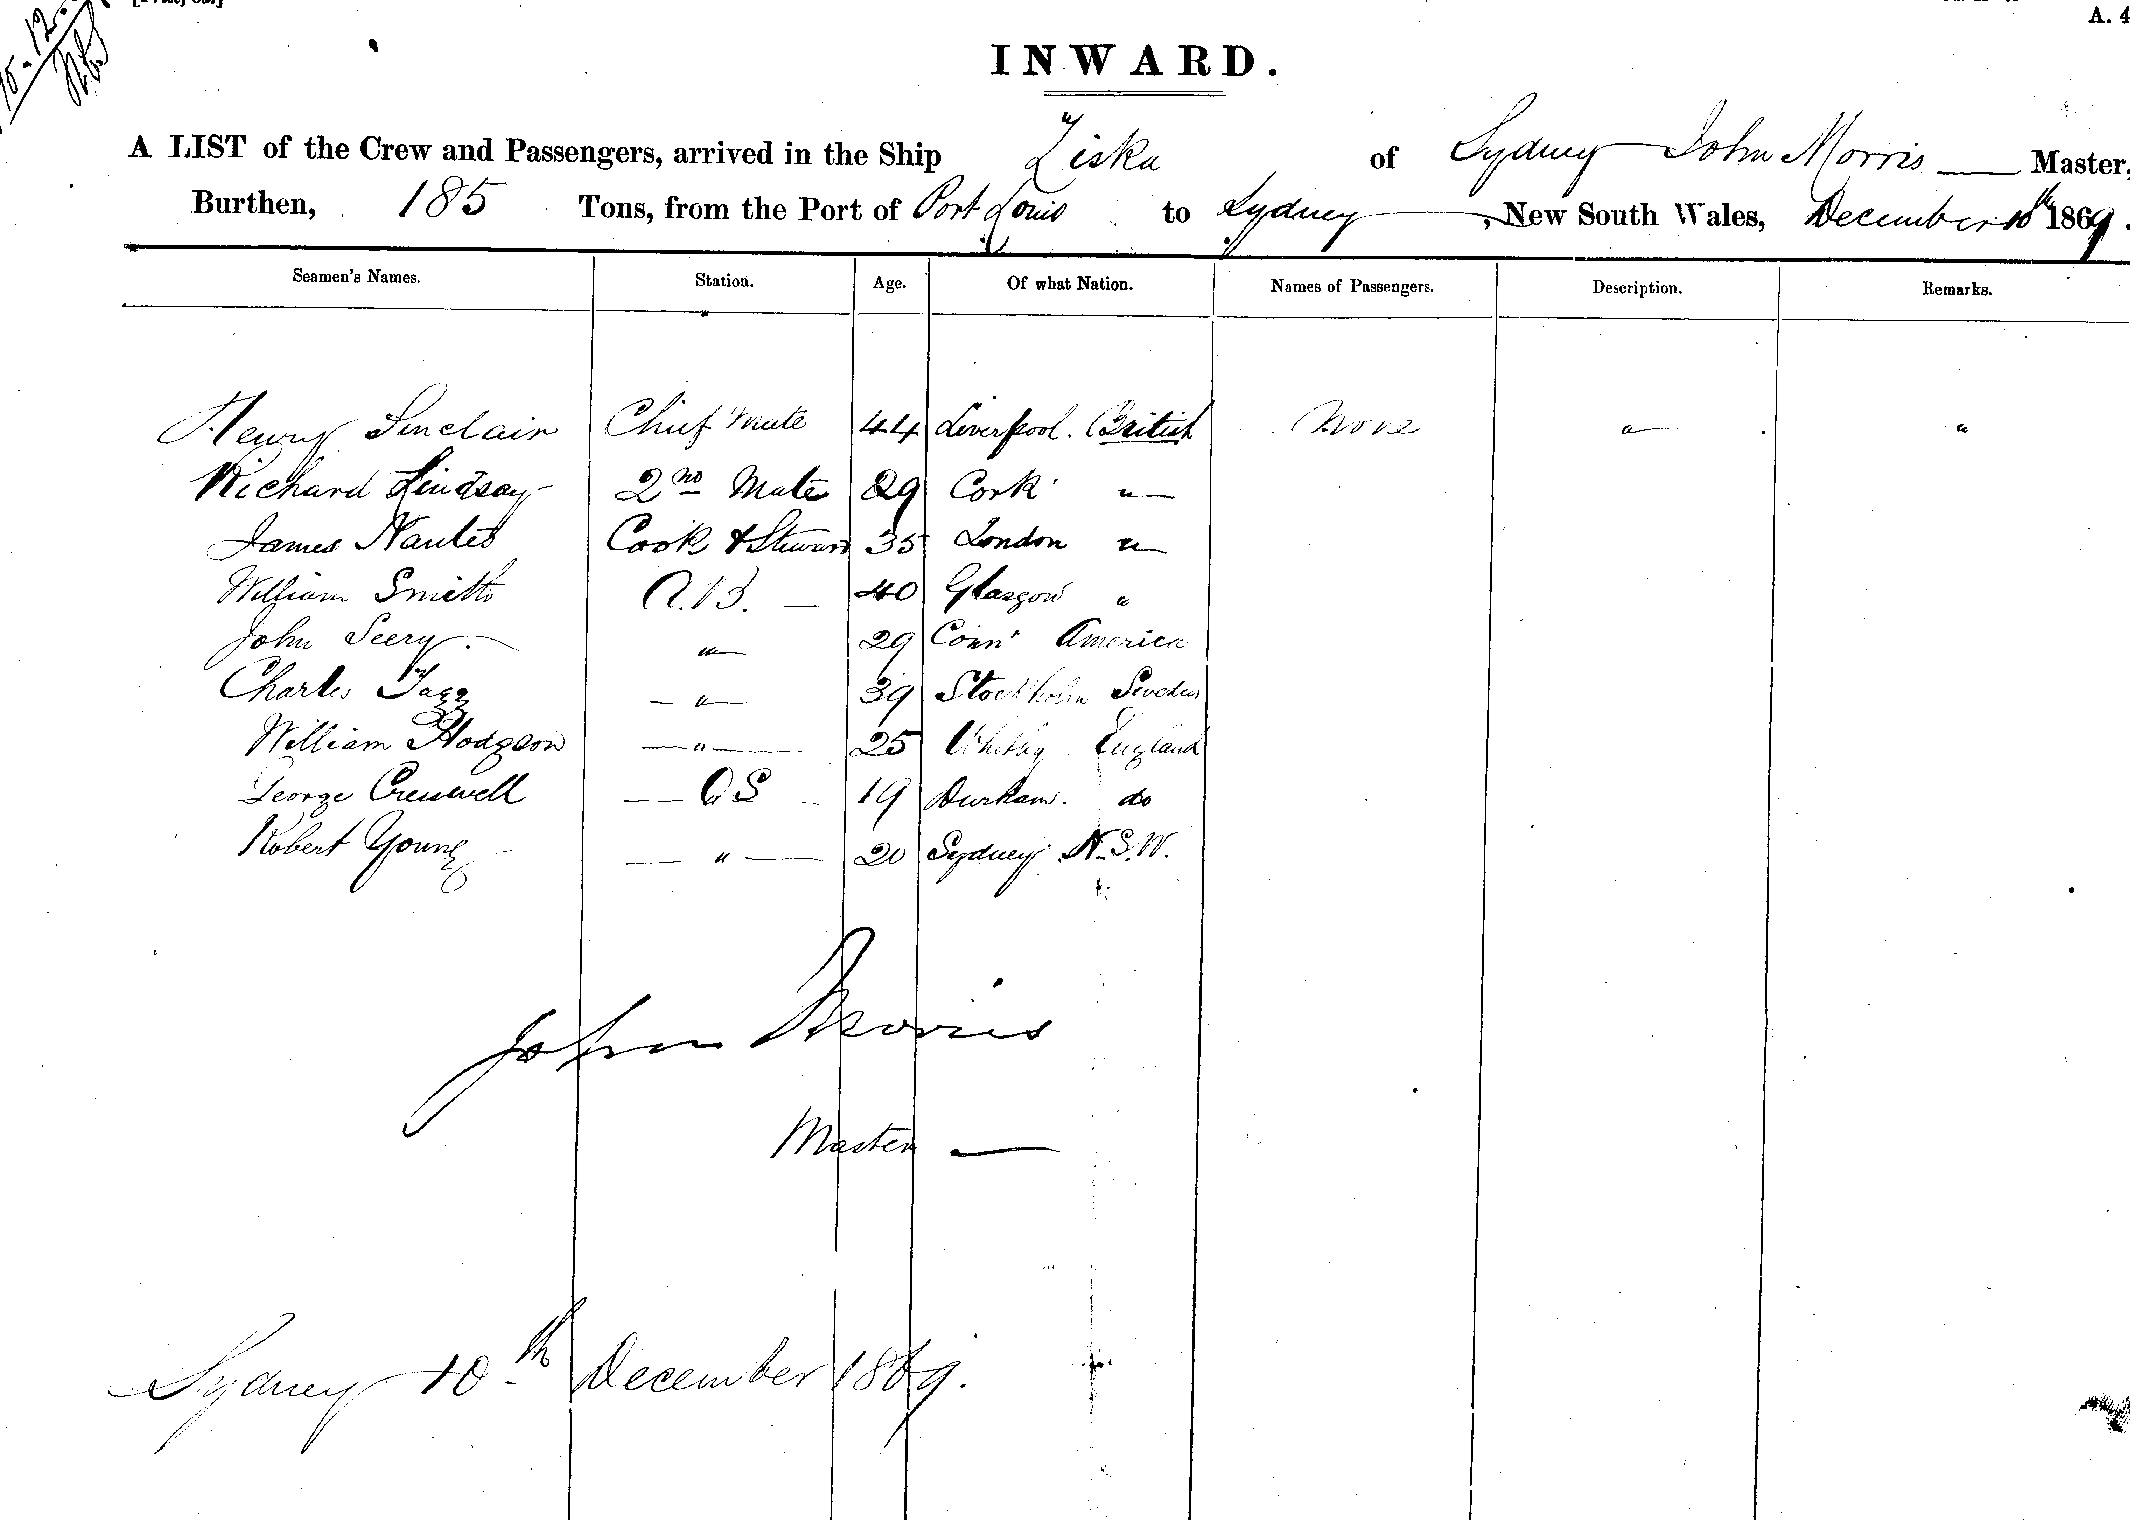 A. 4
10.12.
INWARD.
A LIST of the Crew and Passengers, arrived in the Ship Ziska of Sydney John Morris Master,
Burthen, 185 Tons, from the Port of Port Louis to Sydney, New South Wales, December 10th 1869.
Seamen's Names. Station. Age. Of what Nation. Names of Passengers. Description. Remarks.
Henry Sinclair Chief Mate 44 Liverpool. British None " "
Richard Lindsay 2nd Mate 29 Cork "
James Nantes Cook & Steward 35 London "
William Smith A.B. 40 Glasgow "
John Seery " 29 Conn' America
Charles Fagg " 39 Stockholm Sweden
William Hodgson " 25 Whitby England
George Cresswell OS 19 Durham. do
Robert Young " 20 Sydney N.S.W.
John Morris
Master
Sydney 10th December 1869.